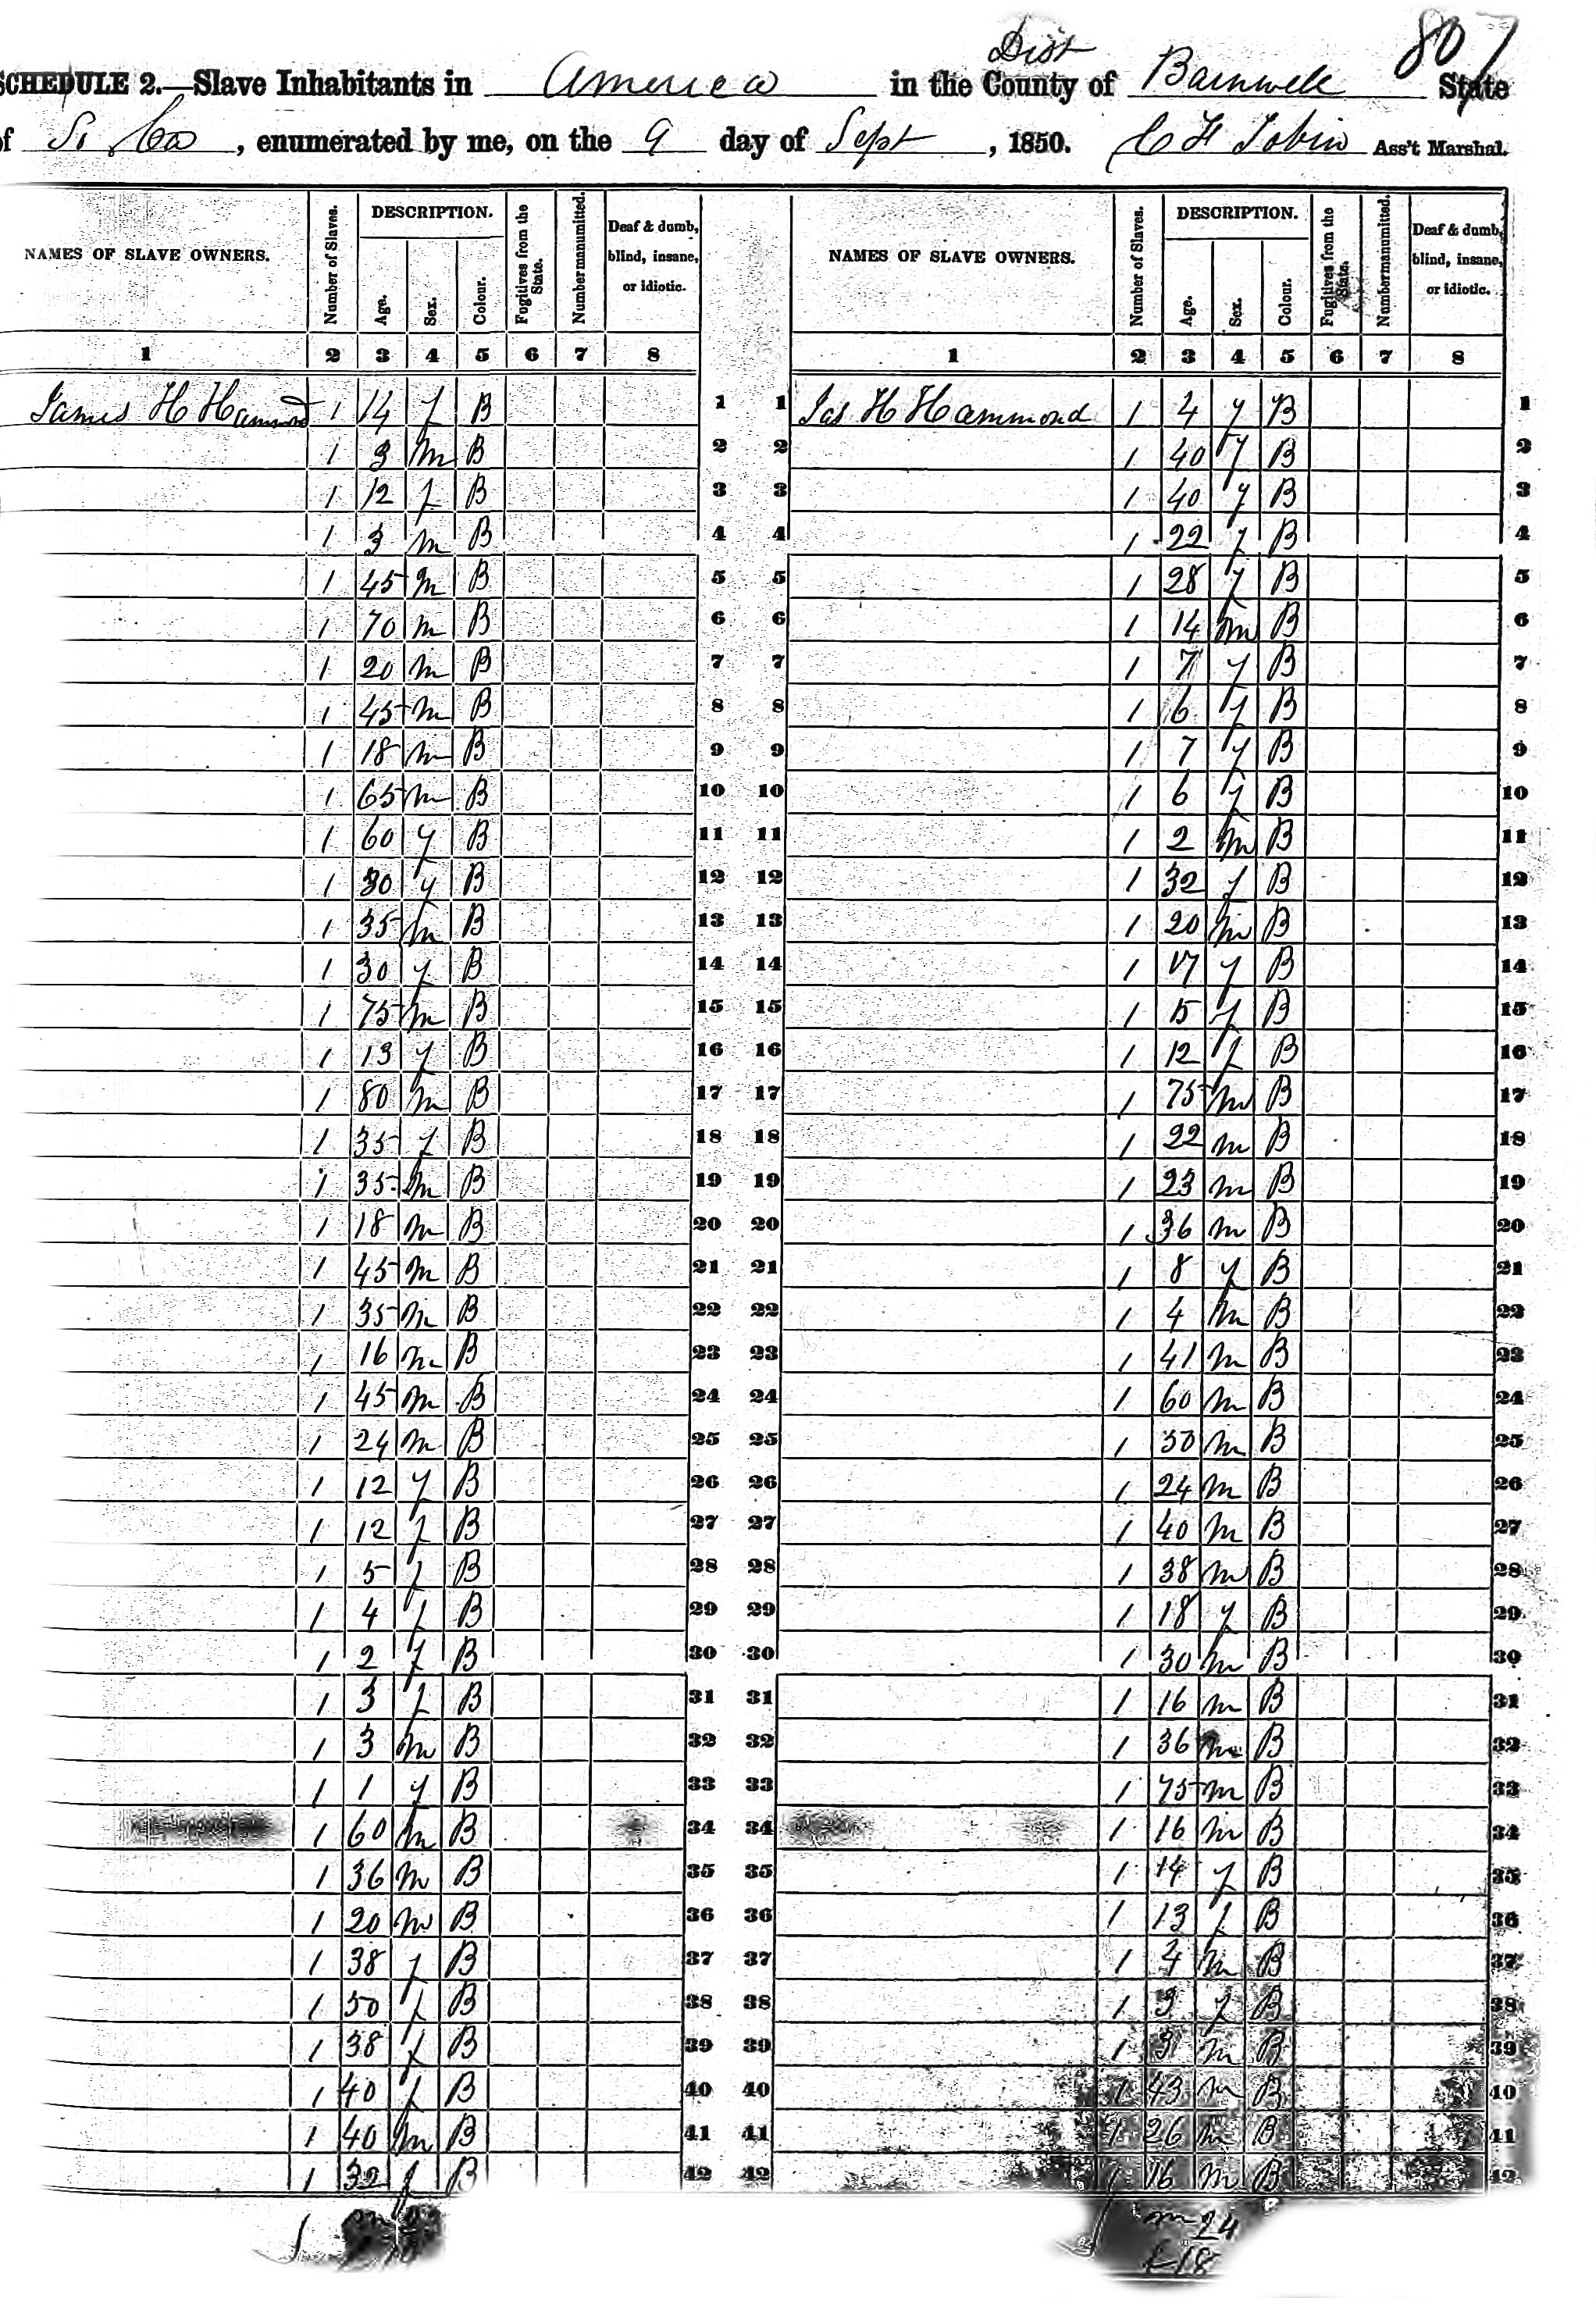 807
Dist
SCHEDULE 2.—Slave Inhabitants in America in the County of Barnwell State
of So Ca, enumerated by me, on the 9 day of Sept, 1850. C H Tobin Ass't Marshal.
NAMES OF SLAVE OWNERS. Number of Slaves. DESCRIPTION. Age. Sex. Colour. Fugitives from the State. Number manumitted. Deaf & dumb, blind, insane, or idiotic. NAMES OF SLAVE OWNERS. Number of Slaves. DESCRIPTION. Age. Sex. Colour. Fugitives from the State. Number manumitted. Deaf & dumb, blind, insane, or idiotic.
1 2 3 4 5 6 7 8 1 2 3 4 5 6 7 8
James H Hammond 1 14 f B 1 1 Jas H Hammond 1 4 f B 1
1 3 m B 2 2 1 40 f B 2
1 12 f B 3 3 1 40 f B 3
1 3 m B 4 4 1 22 f B 4
1 45 m B 5 5 1 28 f B 5
1 70 m B 6 6 1 14 m B 6
1 20 m B 7 7 1 7 f B 7
1 45 m B 8 8 1 6 f B 8
1 18 m B 9 9 1 7 f B 9
1 65 m B 10 10 1 6 f B 10
1 60 f B 11 11 1 2 m B 11
1 30 f B 12 12 1 32 f B 12
1 35 m B 13 13 1 20 m B 13
1 30 f B 14 14 1 17 f B 14
1 75 m B 15 15 1 15 f B 15
1 13 f B 16 16 1 12 f B 16
1 80 m B 17 17 1 75 m B 17
1 35 f B 18 18 1 22 m B 18
1 35 m B 19 19 1 23 m B 19
1 18 m B 20 20 1 36 m B 20
1 45 m B 21 21 1 8 f B 21
1 35 m B 22 22 1 4 m B 22
1 16 m B 23 23 1 41 m B 23
1 45 m B 24 24 1 60 m B 24
1 24 m B 25 25 1 30 m B 25
1 12 f B 26 26 1 24 m B 26
1 12 f B 27 27 1 40 m B 27
1 5 f B 28 28 1 38 m B 28
1 4 f B 29 29 1 18 f B 29
1 2 f B 30 30 1 30 m B 30
1 3 f B 31 31 1 16 m B 31
1 3 m B 32 32 1 36 m B 32
1 1 f B 33 33 1 75 m B 33
1 60 m B 34 34 1 16 m B 34
1 36 m B 35 35 1 14 f B 35
1 20 m B 36 36 1 13 f B 36
1 38 f B 37 37 1 4 m B 37
1 50 f B 38 38 1 3 f B 38
1 38 f B 39 39 1 3 m B 39
1 40 f B 40 40 1 43 m B 40
1 40 m B 41 41 1 26 m B 41
1 32 f B 42 42 1 16 m B 42
m m 24
f 18